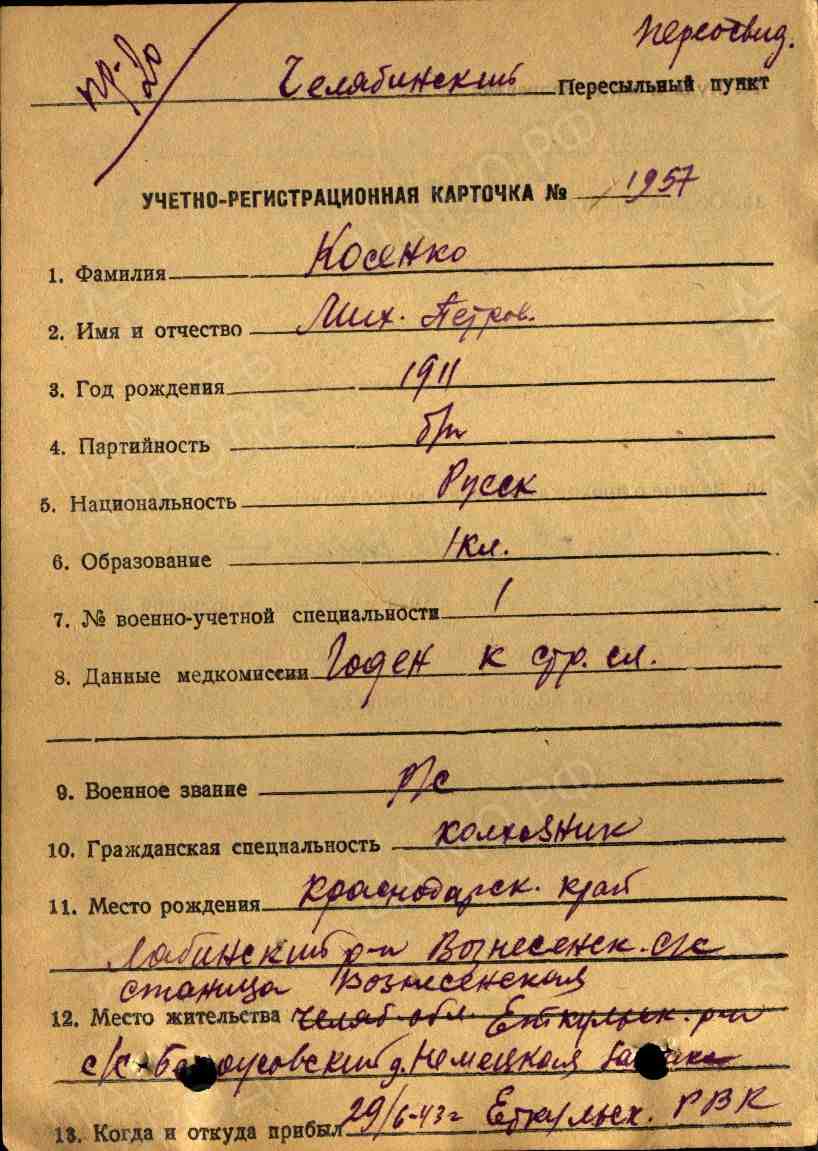 пр-20
Пересвид.
Челябинский Пересыльный пункт
УЧЕТНО-РЕГИСТРАЦИОННАЯ КАРТОЧКА № 1957
1. Фамилия Косенко
2. Имя и отчество Мих. Петров.
3. Год рождения 1911
4. Партийность б/п
5. Национальность Русск
6. Образование 1 кл.
7. № военно-учетной специальности 1
8. Данные медкомиссии Годен к стр. сл.
9. Военное звание р/с
10. Гражданская специальность колхозник
11. Место рождения Краснодарск. край
Лабинский р-н Вознесенск. с/с
станица Вознесенская
12. Место жительства Челяб. обл. Еткульск. р-н
с/с д. Немецкая
13. Когда и откуда прибыл 29/6-43 г Еткульск. РВК